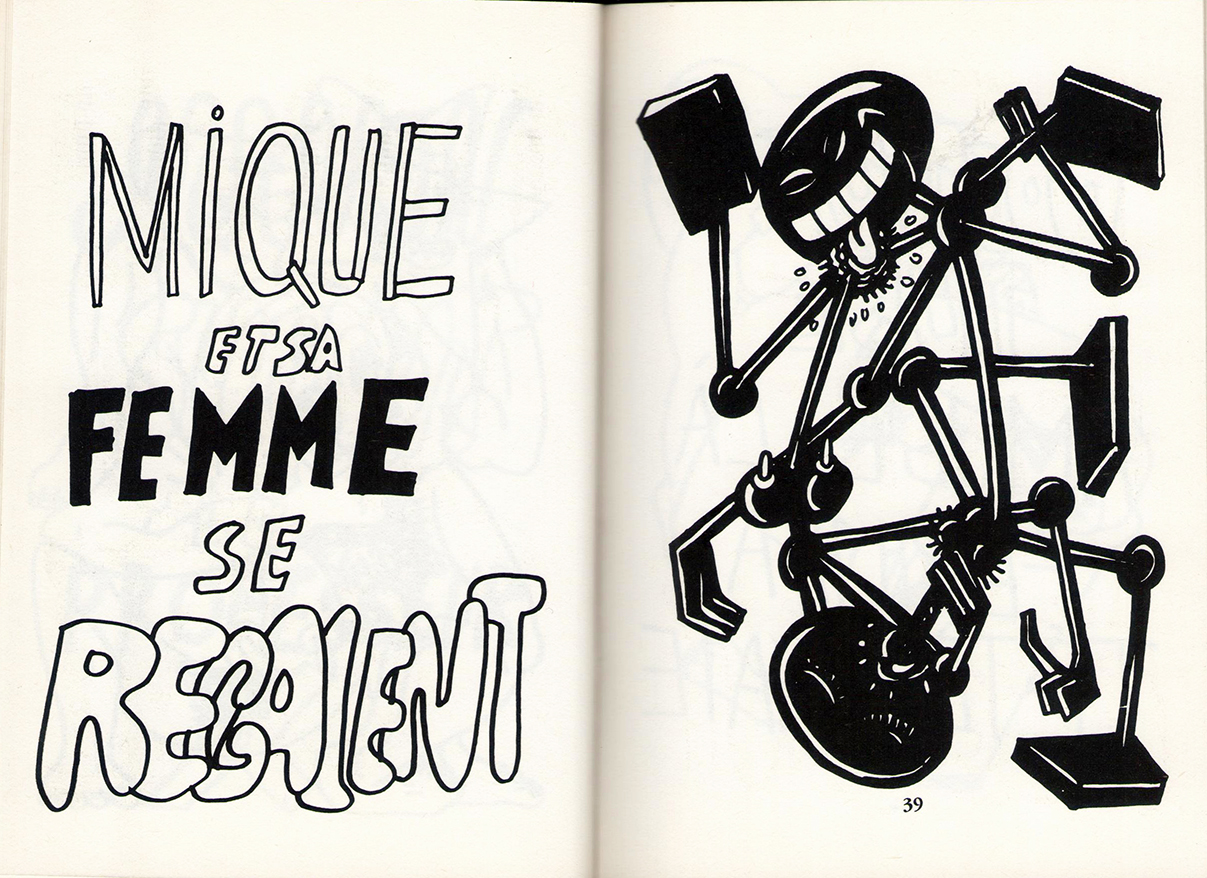 MiQUE
ET SA
FEMME
SE
REGALENT
39